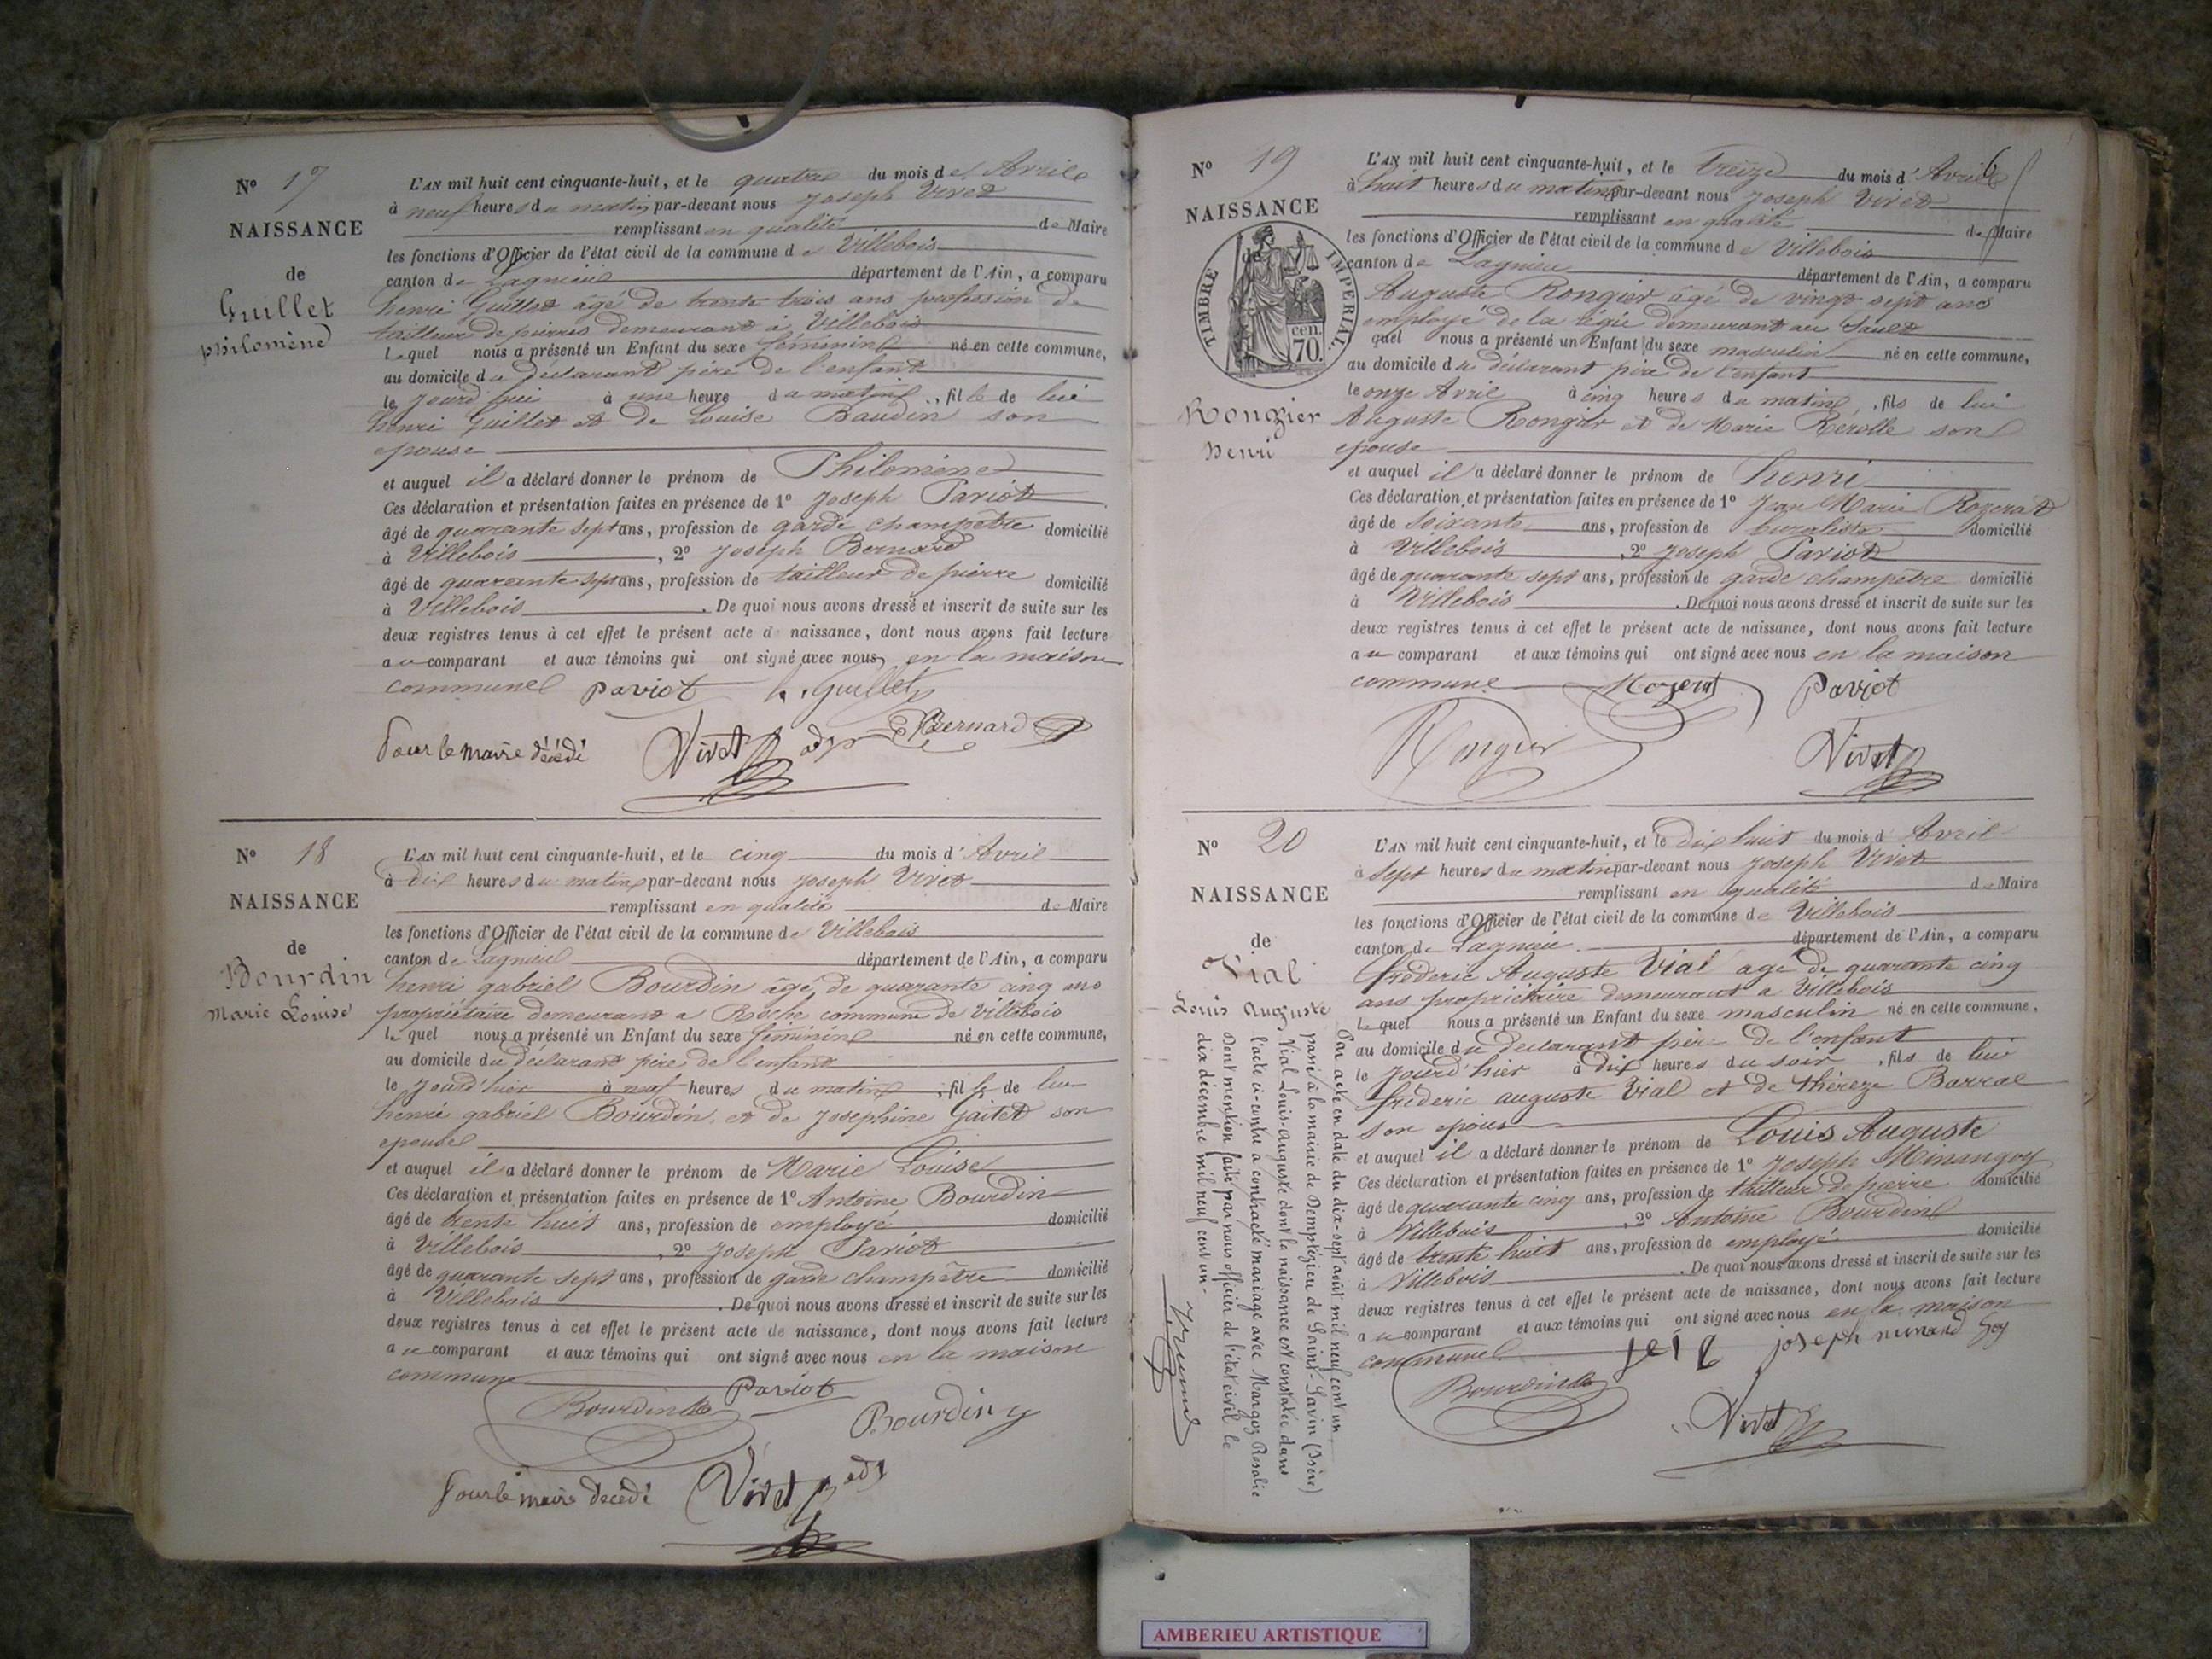 N° 17
NAISSANCE
de
Guillet
philomène
L'AN mil huit cent cinquante-huit, et le quatre du mois d'Avril
à neuf heures du matin par-devant nous Joseph Vivet
remplissant en qualité de Maire
les fonctions d'Officier de l'état civil de la commune de Villebois
canton de Lagnieu département de l'Ain, a comparu
henri Guillet âgé de trente trois ans profession de
tailleur de pierres demeurant à Villebois
lequel nous a présenté un Enfant du sexe féminin né en cette commune,
au domicile du déclarant père de l'enfant
le jourd'hui à une heure du matin, fille de lui
henri Guillet et de Louise Baudin son
epouse
et auquel il a déclaré donner le prénom de Philomène
Ces déclaration et présentation faites en présence de 1° Joseph Pariot
âgé de quarante sept ans, profession de garde champêtre domicilié
à Villebois, 2° Joseph Bernard
âgé de quarante sept ans, profession de tailleur de pierre domicilié
à Villebois. De quoi nous avons dressé et inscrit de suite sur les
deux registres tenus à cet effet le présent acte de naissance, dont nous avons fait lecture
au comparant et aux témoins qui ont signé avec nous en la maison
commune pariot h. Guillet
Pour le maire décédé Vivet adj Bernard
N° 18
NAISSANCE
de
Bourdin
Marie Louise
L'AN mil huit cent cinquante-huit, et le cinq du mois d'Avril
à dix heures du matin par-devant nous Joseph Vivet
remplissant en qualité de Maire
les fonctions d'Officier de l'état civil de la commune de Villebois
canton de Lagnieu département de l'Ain, a comparu
henri gabriel Bourdin âgé de quarante cinq ans
propriétaire demeurant a Roche commune de Villebois
lequel nous a présenté un Enfant du sexe féminin né en cette commune,
au domicile du déclarant père de l'enfant
le jourd'hier à neuf heures du matin, fille de lui
henri gabriel Bourdin et de Josephine Gaitet son
epouse
et auquel il a déclaré donner le prénom de Marie Louise
Ces déclaration et présentation faites en présence de 1° Antoine Bourdin
âgé de trente huit ans, profession de employé domicilié
à Villebois, 2° Joseph Pariot
âgé de quarante sept ans, profession de garde champêtre domicilié
à Villebois. De quoi nous avons dressé et inscrit de suite sur les
deux registres tenus à cet effet le présent acte de naissance, dont nous avons fait lecture
au comparant et aux témoins qui ont signé avec nous en la maison
commune Pariot
Bourdin Bourdin
Pour le maire décédé Vivet adj
N° 19
NAISSANCE
de
TIMBRE IMPERIAL
cen.
70.
Rongier
Henri
6
L'AN mil huit cent cinquante-huit, et le treize du mois d'Avril
à huit heures du matin par-devant nous Joseph Vivet
remplissant en qualité de Maire
les fonctions d'Officier de l'état civil de la commune de Villebois
canton de Lagnieu département de l'Ain, a comparu
Auguste Rongier âgé de vingt sept ans
employé de la régie demeurant au Sault
quel nous a présenté un Enfant du sexe masculin né en cette commune,
au domicile du déclarant père de l'enfant
le onze Avril à cinq heures du matin, fils de lui
Auguste Rongier et de Marie Rerolle son
epouse
et auquel il a déclaré donner le prénom de henri
Ces déclaration et présentation faites en présence de 1° Jean Marie Rozerat
âgé de soixante ans, profession de buraliste domicilié
à Villebois, 2° Joseph Pariot
âgé de quarante sept ans, profession de garde champêtre domicilié
à Villebois. De quoi nous avons dressé et inscrit de suite sur les
deux registres tenus à cet effet le présent acte de naissance, dont nous avons fait lecture
au comparant et aux témoins qui ont signé avec nous en la maison
commune Rozerat Pariot
Rongier Vivet
N° 20
NAISSANCE
de
Vial
Louis Auguste
Par acte en date du dix-sept août mil neuf cent un,
passé à la mairie de Demptézieu de Saint-Savin (Isère)
Vial Louis-Auguste dont la naissance est constatée dans
l'acte ci-contre a contracté mariage avec Margoz Rosalie
Dont mention faite par nous officier de l'état civil le
dix décembre mil neuf cent un.
L'AN mil huit cent cinquante-huit, et le dix huit du mois d'Avril
à sept heures du matin par-devant nous Joseph Vivet
remplissant en qualité de Maire
les fonctions d'Officier de l'état civil de la commune de Villebois
canton de Lagnieu département de l'Ain, a comparu
frédéric Auguste Vial agé de quarante cinq
ans propriétaire demeurant a Villebois
lequel nous a présenté un Enfant du sexe masculin né en cette commune,
au domicile du declarant père de l'enfant
le jourd'hier à dix heures du soir, fils de lui
frédéric auguste Vial et de thérèze Barral
son epouse
et auquel il a déclaré donner le prénom de Louis Auguste
Ces déclaration et présentation faites en présence de 1° Joseph Minangoy
âgé de quarante cinq ans, profession de tailleur de pierre domicilié
à Villebois, 2° Antoine Bourdin
âgé de trente huit ans, profession de employé domicilié
à Villebois. De quoi nous avons dressé et inscrit de suite sur les
deux registres tenus à cet effet le présent acte de naissance, dont nous avons fait lecture
au comparant et aux témoins qui ont signé avec nous en la maison
commune joseph
Bourdin Vivet
AMBERIEU ARTISTIQUE